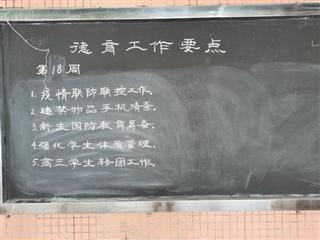 德育工作要点
第18周
1. 疫情联防联控工作。
2. 违禁物品手机清查。
3. 新生国防教育筹备。
4. 强化学生体质管理。
5. 高三学生转团工作。